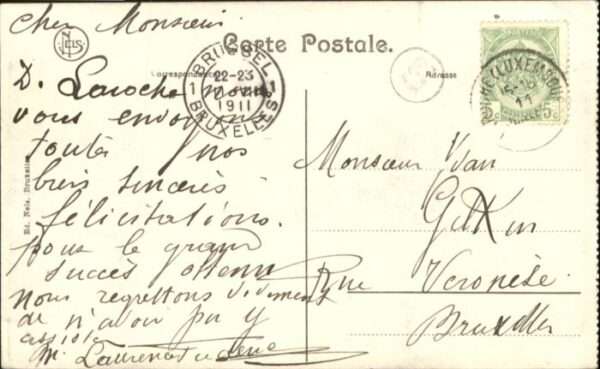 Cher Monsieur
Carte Postale.
Correspondance
Adresse
BRUSSEL
1 22-23 1
1911
BRUXELLES
(LUXEMBOURG)
11
5c 5c
D. Laroche nous
vous envoyons
toutes nos
biens sincères
félicitations
pour le grand
succès obtenu
Nous regrettons vivement
de n'avoir pu y
assister
M. Laurent
Monsieur Van
Rue Veronèse
Bruxelles
Ed. Nels, Bruxelles